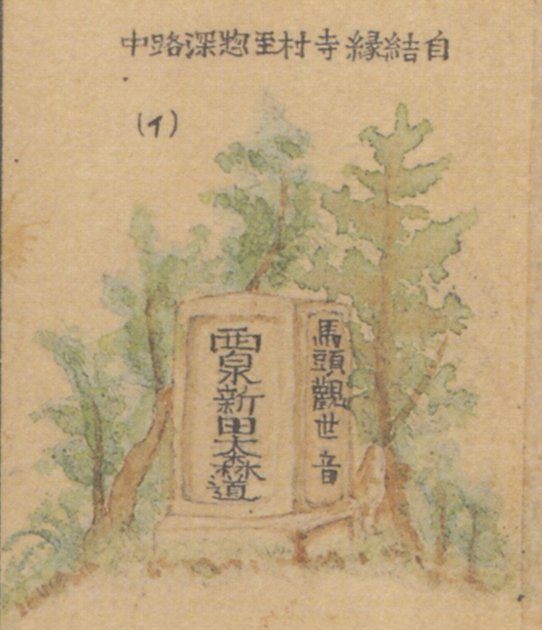 自結縁寺村至惣深路中
(イ)
馬頭觀世音
西泉新田大森道